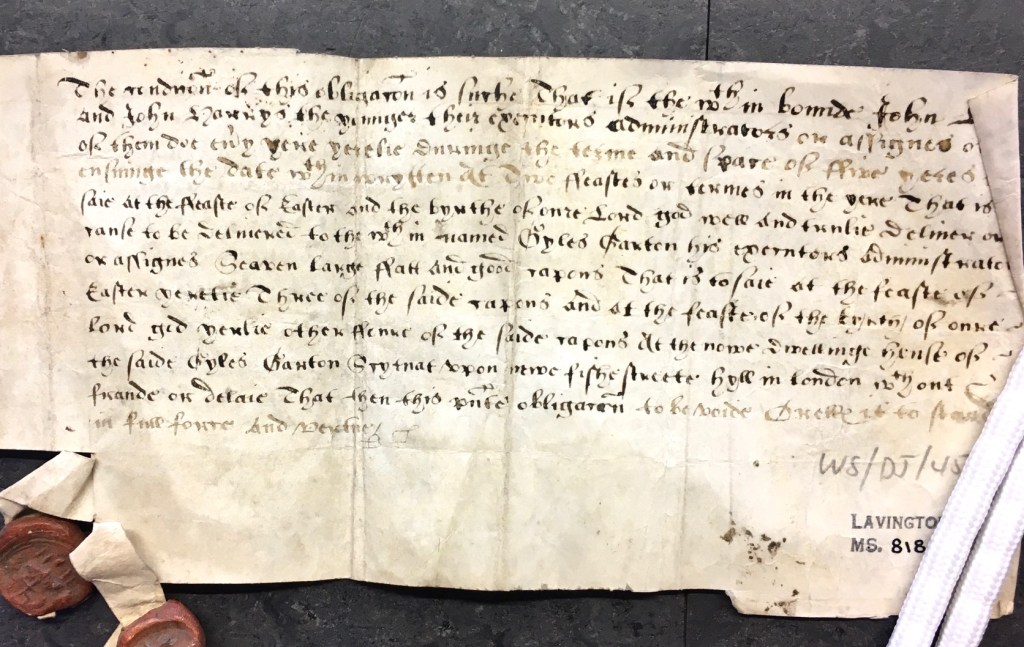 The condicōn of this obligacōn is suche That if the wthin bounde John
and John Harrys the younger their executors administrators or assignes o
of them doe eu'y yere yerelie duringe the terme and space of ffive yeres
ensuinge the date wthin wrytten At Two ffeastes or termes in the yere That is
saie At the ffeaste of Easter and the byrthe of oure Lord god well and trulie deliuer or
cause to be deliuered to the wthin named Gyles Garton his executors administrato
or assignes Seaven large ffatt and good capons That is to saie at the feaste of
Easter yerelie Three of the saide capons and at the feaste of the byrth of oure
Lord god yerlie other ffoure of the saide capons At the nowe dwellinge house of
the saide Gyles Garton Scytuat vpon newe fishe streete hyll in London wthout
fraude or delaie That then this pn̄te obligacōn to be voide Or ells it to stand
in full force and vertue
WS/DJ/45
LAVINGTO
MS. 818